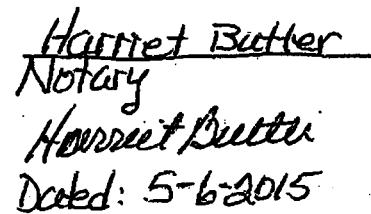 Harriet Butler
Notary
Harriet Butler
Dated: 5-6-2015